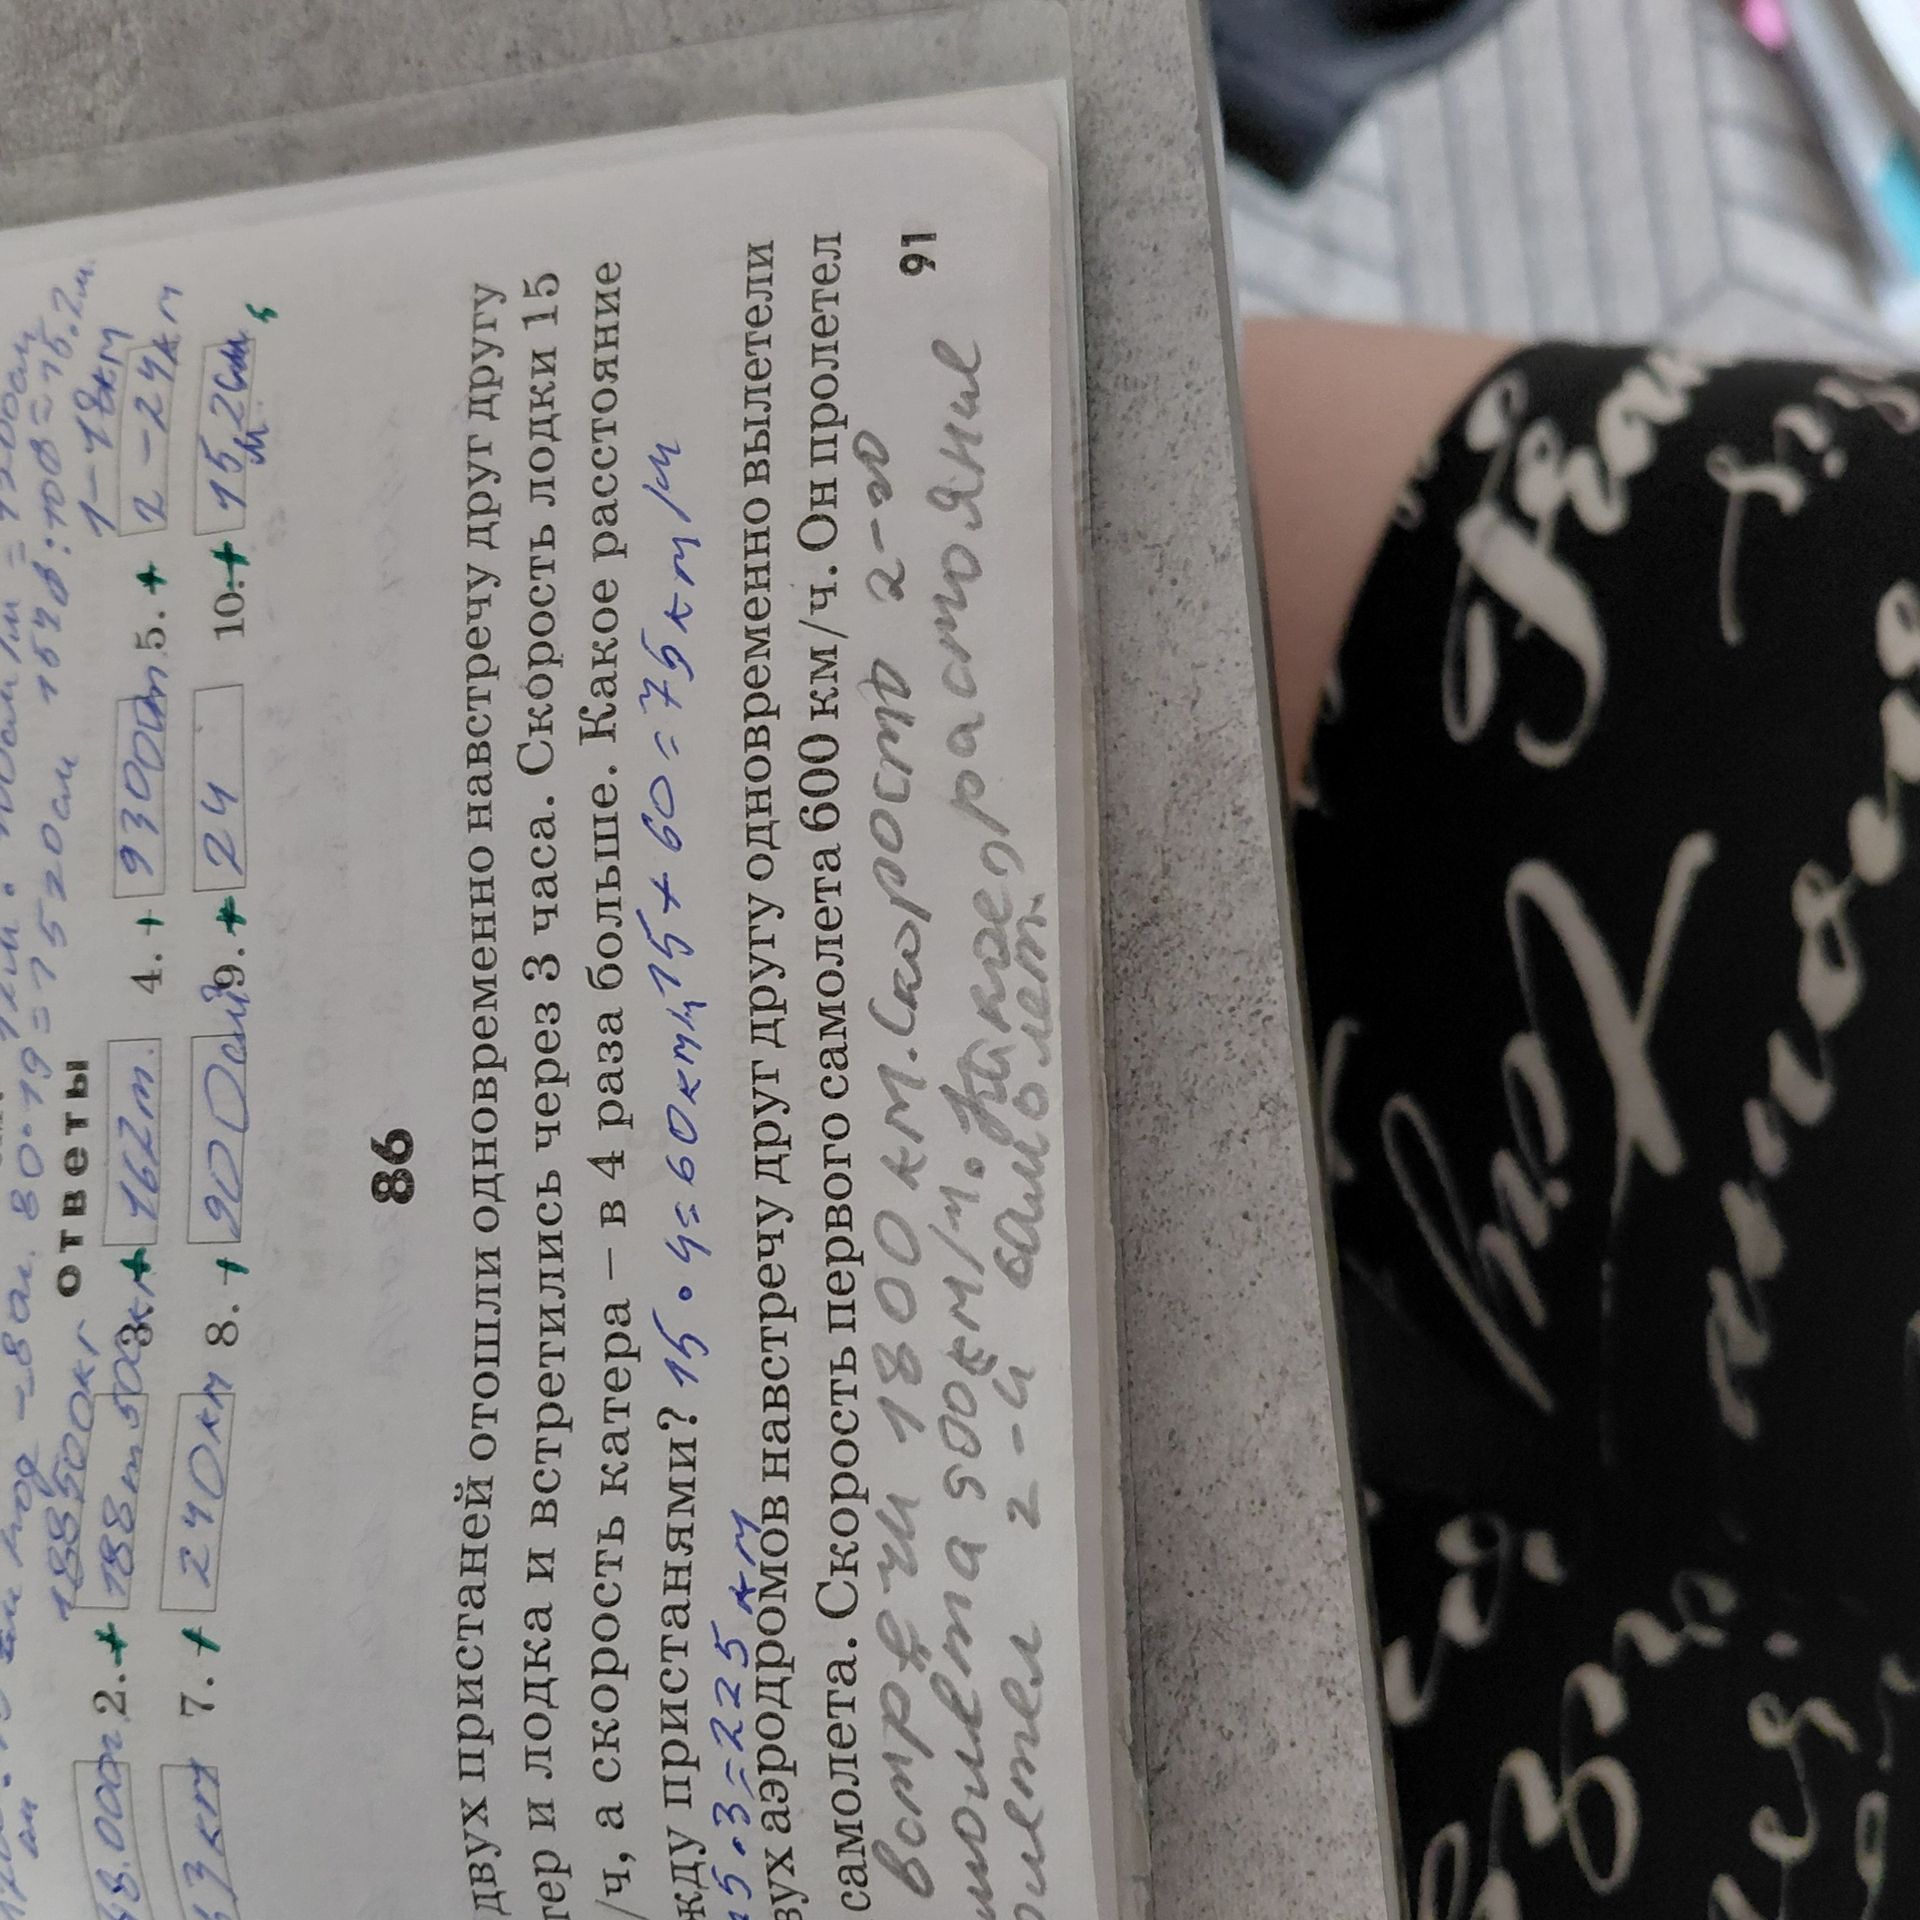 80·19=1520см 1520:100=15.2м.
188500кг
ответы
1-48км
48.000г 2.+ 188т500кг 3.+ 162т. 4.+ 93000т 5.+ 2-24км
63км 7.+ 240км 8.+ 900см 9.+ 24 10.+ 15,2см
м
86
двух пристаней отошли одновременно навстречу друг другу
тер и лодка и встретились через 3 часа. Скорость лодки 15
/ч, а скорость катера – в 4 раза больше. Какое расстояние
жду пристанями? 15·4=60км/ч 15+60=75км/ч
75·3=225 км
вух аэродромов навстречу друг другу одновременно вылетели
самолета. Скорость первого самолета 600 км/ч. Он пролетел
встречи 1800 км. Скорость 2-го
молета 500км/ч. Какоед растояние
ролетел 2-й самолет.
91